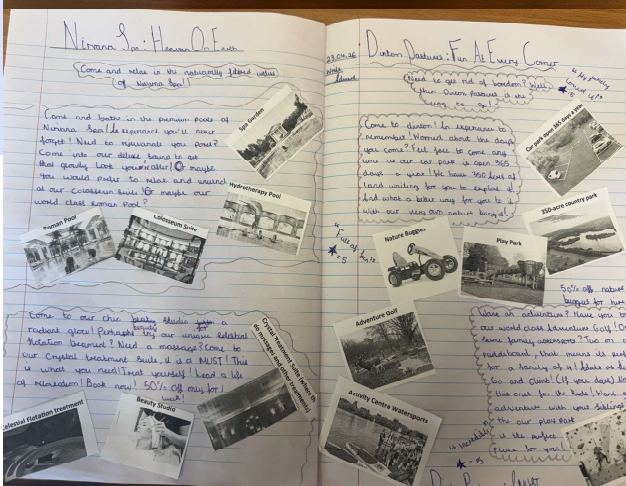 Nirvana Spa: Heaven On Earth
Come and relax in the naturally filtered water
of Nirvana Spa!
Come and bathe in the premium pools of
Nirvana Spa! An experience you'll never
forget! Need to rejuvenate your pores?
Come into our deluxe sauna to get
that Or maybe
You would prefer to relax and unwind
at our Colosseum Suite! Or maybe our
world class Roman Pool?
Spa Garden
Hydrotherapy Pool
Roman Pool
Colosseum Suite
Come to our chic beauty studio for a
radiant glow! Perhaps try our unique Celestial
flotation treatment? Need a massage? Come to
our Crystal treatment suite, it is a MUST! This
is what you need! Treat yourself! Lead a life
of relaxation! Book now! 50% off only for 1
week!
Crystal Treatment Suite (where th
do massages and other treatments)
Celestial Flotation treatment
Beauty Studio
23.04.26
Dinton Pastures: Fun At Every Corner
Need to get rid of boredom? Well
then Dinton Pastures is the
way to go!
"My family
loved it!"
5
Come to Dinton! An experience to
remember! Worried about the days
you come? Feel free to come any
time as our car park is open 365
days a year! We have 350 acres of
land waiting for you to explore it.
And what a better way for you to it
with our very own nature buggies!
Car park open 365 days a year
350-acre country park
"Full of fun"
5
Nature Buggies
Play Park
50% off nature
buggies for hire
Want an adventure? Have you to
our world class Adventure Golf!
some family watersports? Two on a
paddleboard, that means its per
for a family of 4!
Go and climb! (If you dare)
this one's for the kids! Have a
adventure with your siblings
the our play park
is the perfect
for you!
Adventure Golf
Activity Centre Watersports
is incredible
5